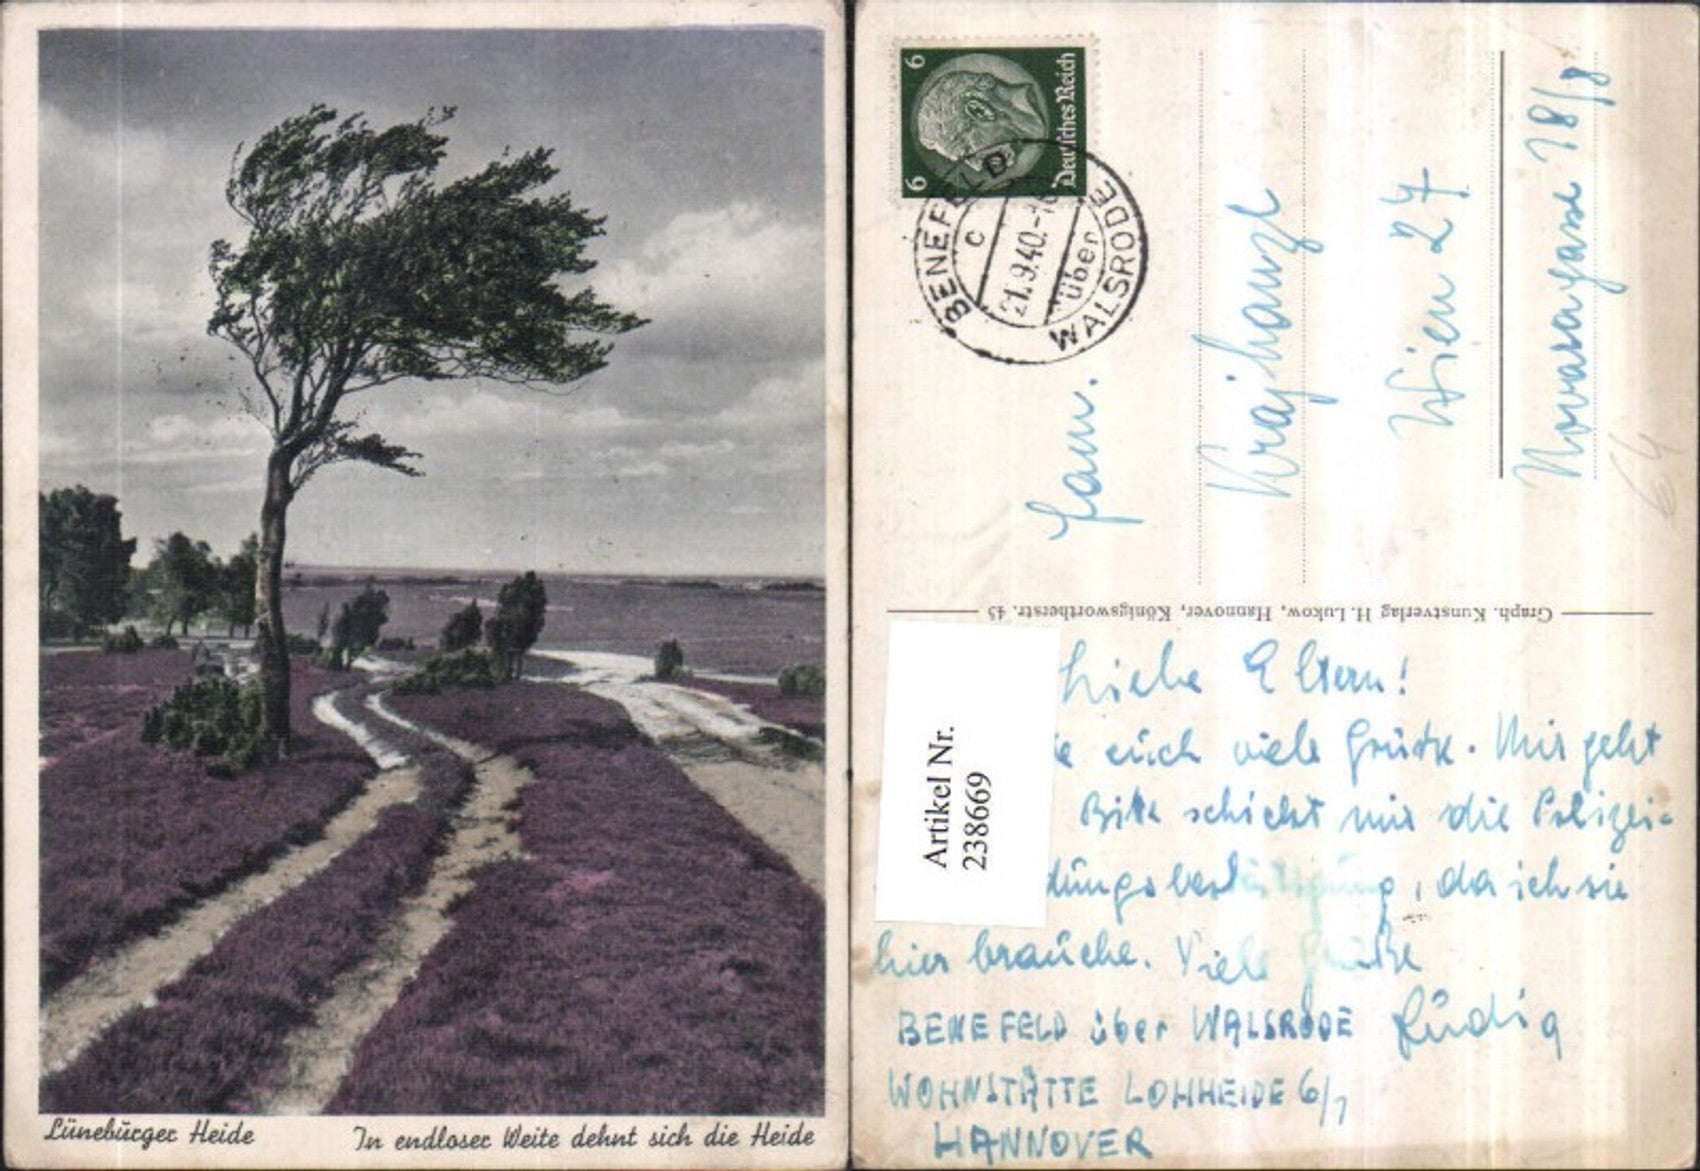 Lüneburger Heide
In endloser Weite dehnt sich die Heide
6
6
Deutsches Reich
BENEFELD
c
21.9.40.-1
über
WALSRODE
Fam.
Krajhanzl
Wien 27
Novaragasse 18/8
64
Graph. Kunstverlag H. Lukow, Hannover, Königswortherstr. 45
Artikel Nr.
238669
Liebe Eltern!
euch viele Grüße. Mir geht
Bitte schickt mir die Polizei-
dungsbestätigung, da ich sie
hier brauche. Viele Grüße
BENEFELD über WALSRODE Rüdig
WOHNSTÄTTE LOHHEIDE 6/7
HANNOVER